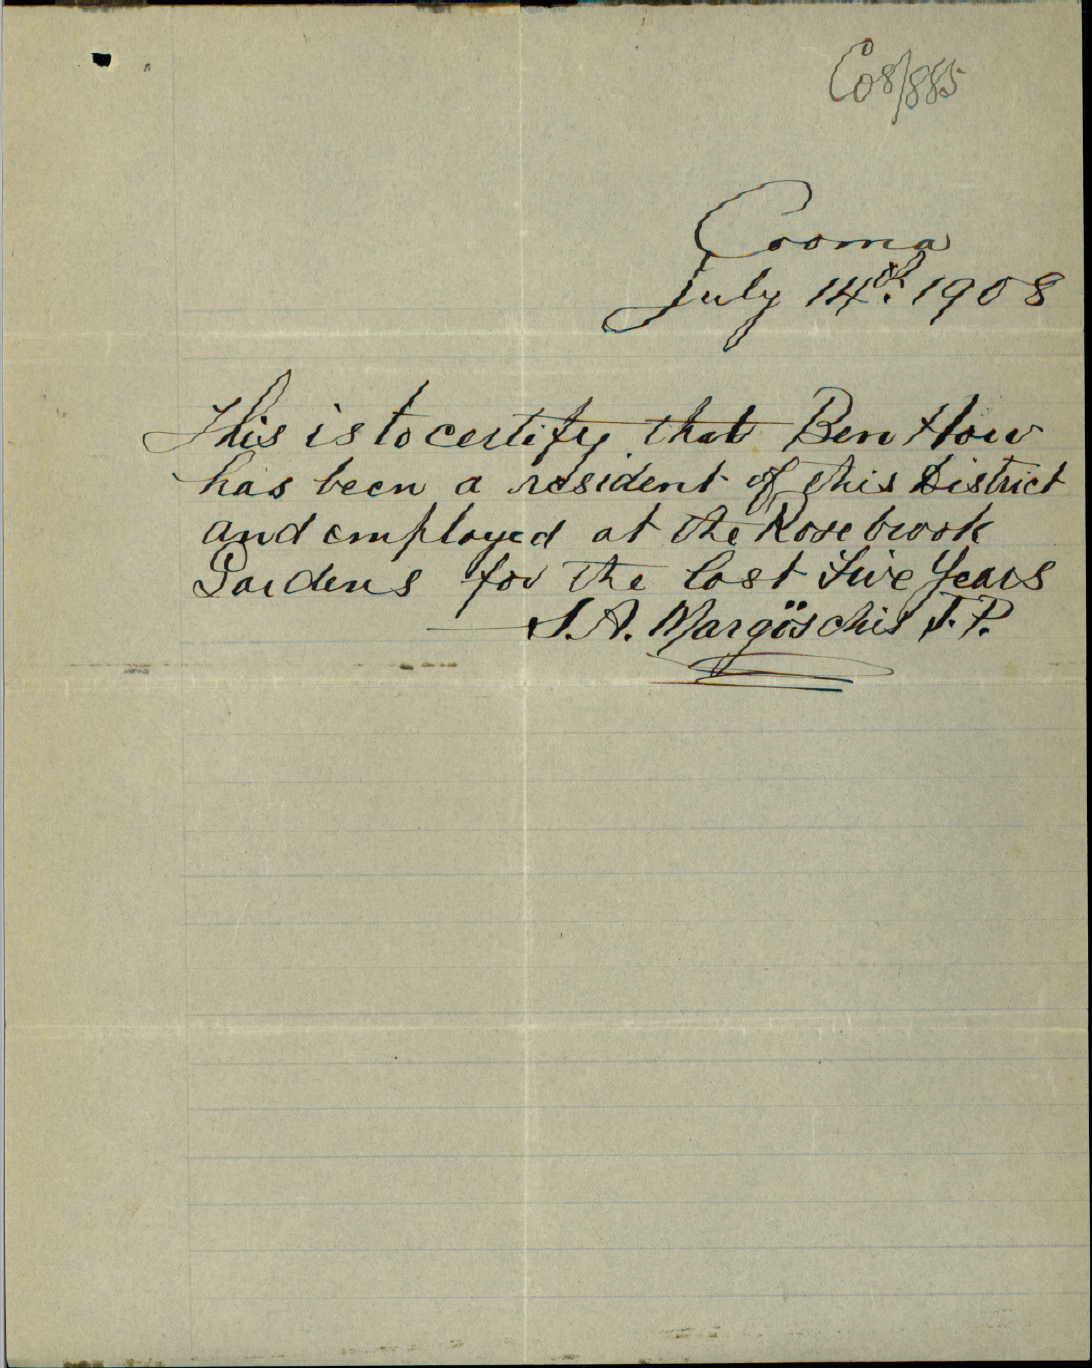 Co8/885
Cooma
July 14th. 1908
This is to certify that Ben How
has been a resident of this District
and employed at the Rosebrook
Gardens for the last five Years
S. A. Margöschis J. P.